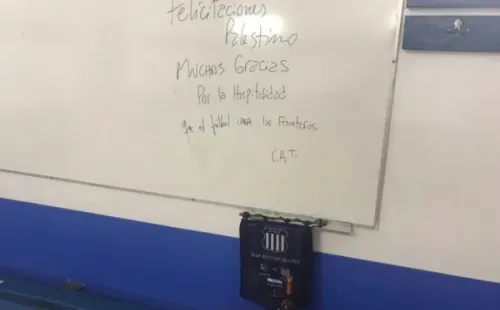 Felicitaciones
Palestino
MUCHAS Gracias
Por la Hospitalidad
que el fútbol una las Fronteras
C.A.T.